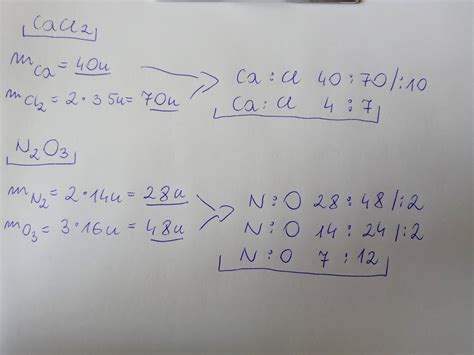 CaCl2
mCa = 40u
mCl2 = 2 · 35u = 70u
Ca : Cl 40 : 70 /:10
Ca : Cl 4 : 7
N2O3
mN2 = 2 · 14u = 28u
mO3 = 3 · 16u = 48u
N : O 28 : 48 /:2
N : O 14 : 24 /:2
N : O 7 : 12